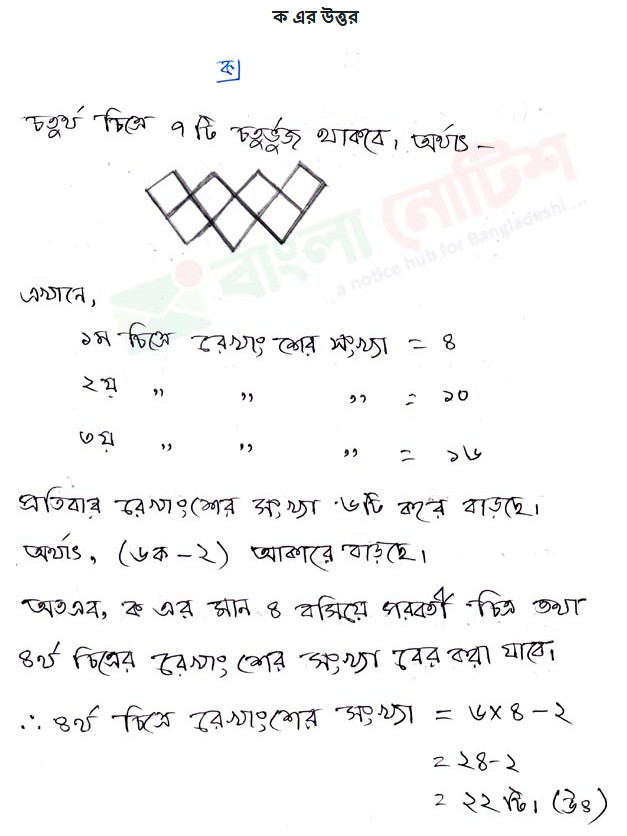 ক এর উত্তর
ক
চতুর্থ চিত্রে ৭ টি চতুর্ভুজ থাকবে। অর্থাৎ -
বাংলা নোটিশ
a notice hub for Bangladeshi ...
এখানে,
১ম চিত্রে রেখাংশের সংখ্যা = ৪
২য় ,, ,, ,, = ১০
৩য় ,, ,, ,, = ১৬
প্রতিবার রেখাংশের সংখ্যা ৬টি করে বাড়ছে।
অর্থাৎ, (৬ক - ২) আকারে বাড়ছে।
অতএব, ক এর মান ৪ বসিয়ে পরবর্তী চিত্র তথা
৪র্থ চিত্রের রেখাংশের সংখ্যা বের করা যাবে।
∴ ৪র্থ চিত্রে রেখাংশের সংখ্যা = ৬ × ৪ - ২
= ২৪-২
= ২২ টি। (উঃ)